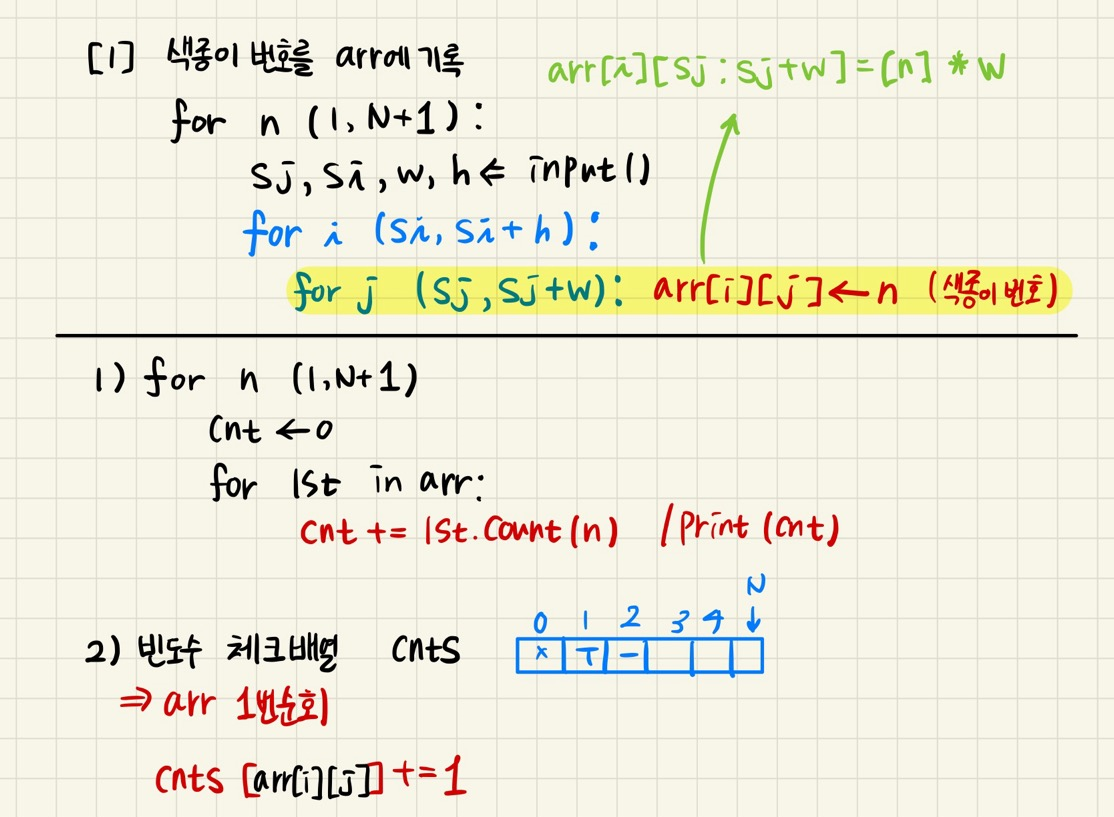 [1] 색종이 번호를 arr에 기록
arr[i][sj:sj+w]=[n] * w
for n (1, N+1):
sj, si, w, h ⇐ input()
for i (si, si+h):
for j (sj, sj+w): arr[i][j]←n (색종이 번호)
1) for n (1,N+1)
cnt ←0
for lst in arr:
cnt += lst.count(n) /print(cnt)
N
0 1 2 3 4 ↓
2) 빈도수 체크배열 cnts
x T -
⇒ arr 1번순회
cnts [arr[i][j]] +=1